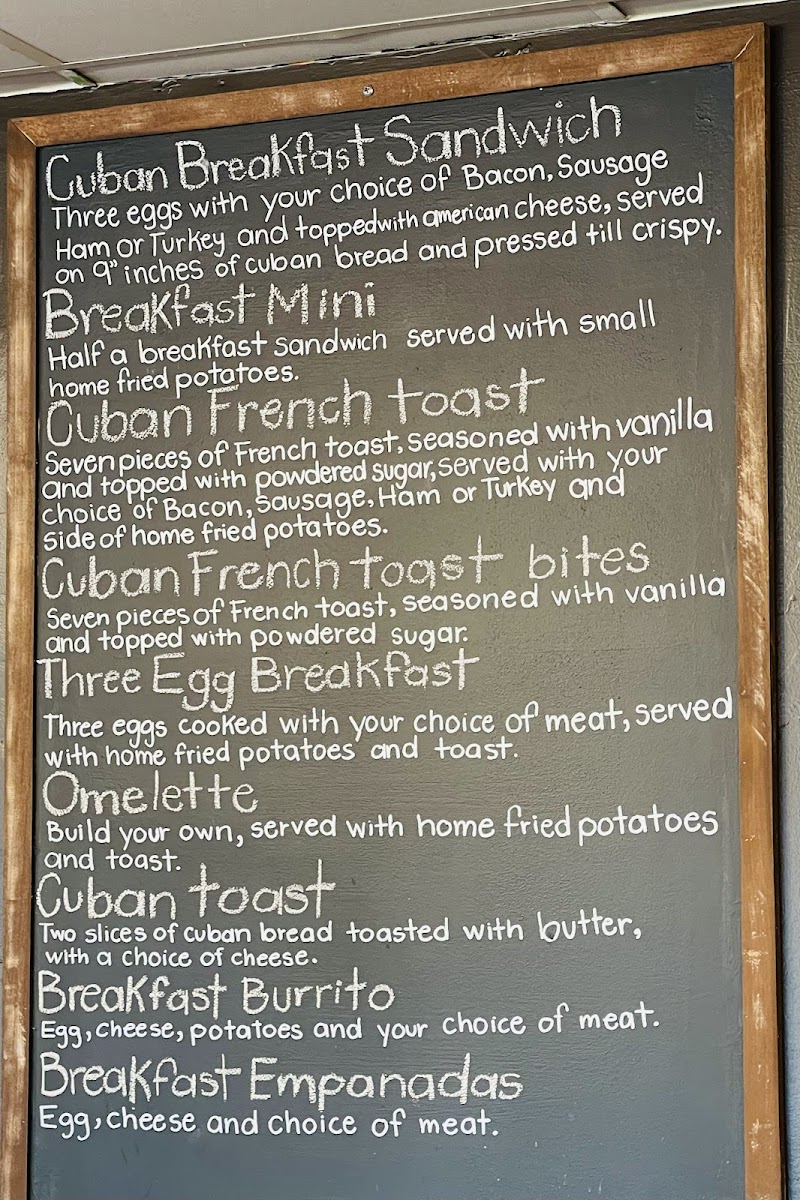 Cuban Breakfast Sandwich
Three eggs with your choice of Bacon, Sausage
Ham or Turkey and topped with american cheese, served
on 9" inches of cuban bread and pressed till crispy.
Breakfast Mini
Half a breakfast sandwich served with small
home fried potatoes.
Cuban French toast
Seven pieces of French toast, seasoned with vanilla
and topped with powdered sugar, served with your
choice of Bacon, Sausage, Ham or Turkey and
side of home fried potatoes.
Cuban French toast bites
Seven pieces of French toast, seasoned with vanilla
and topped with powdered sugar.
Three Egg Breakfast
Three eggs cooked with your choice of meat, served
with home fried potatoes and toast.
Omelette
Build your own, served with home fried potatoes
and toast.
Cuban toast
Two slices of cuban bread toasted with butter,
with a choice of cheese.
Breakfast Burrito
Egg, cheese, potatoes and your choice of meat.
Breakfast Empanadas
Egg, cheese and choice of meat.